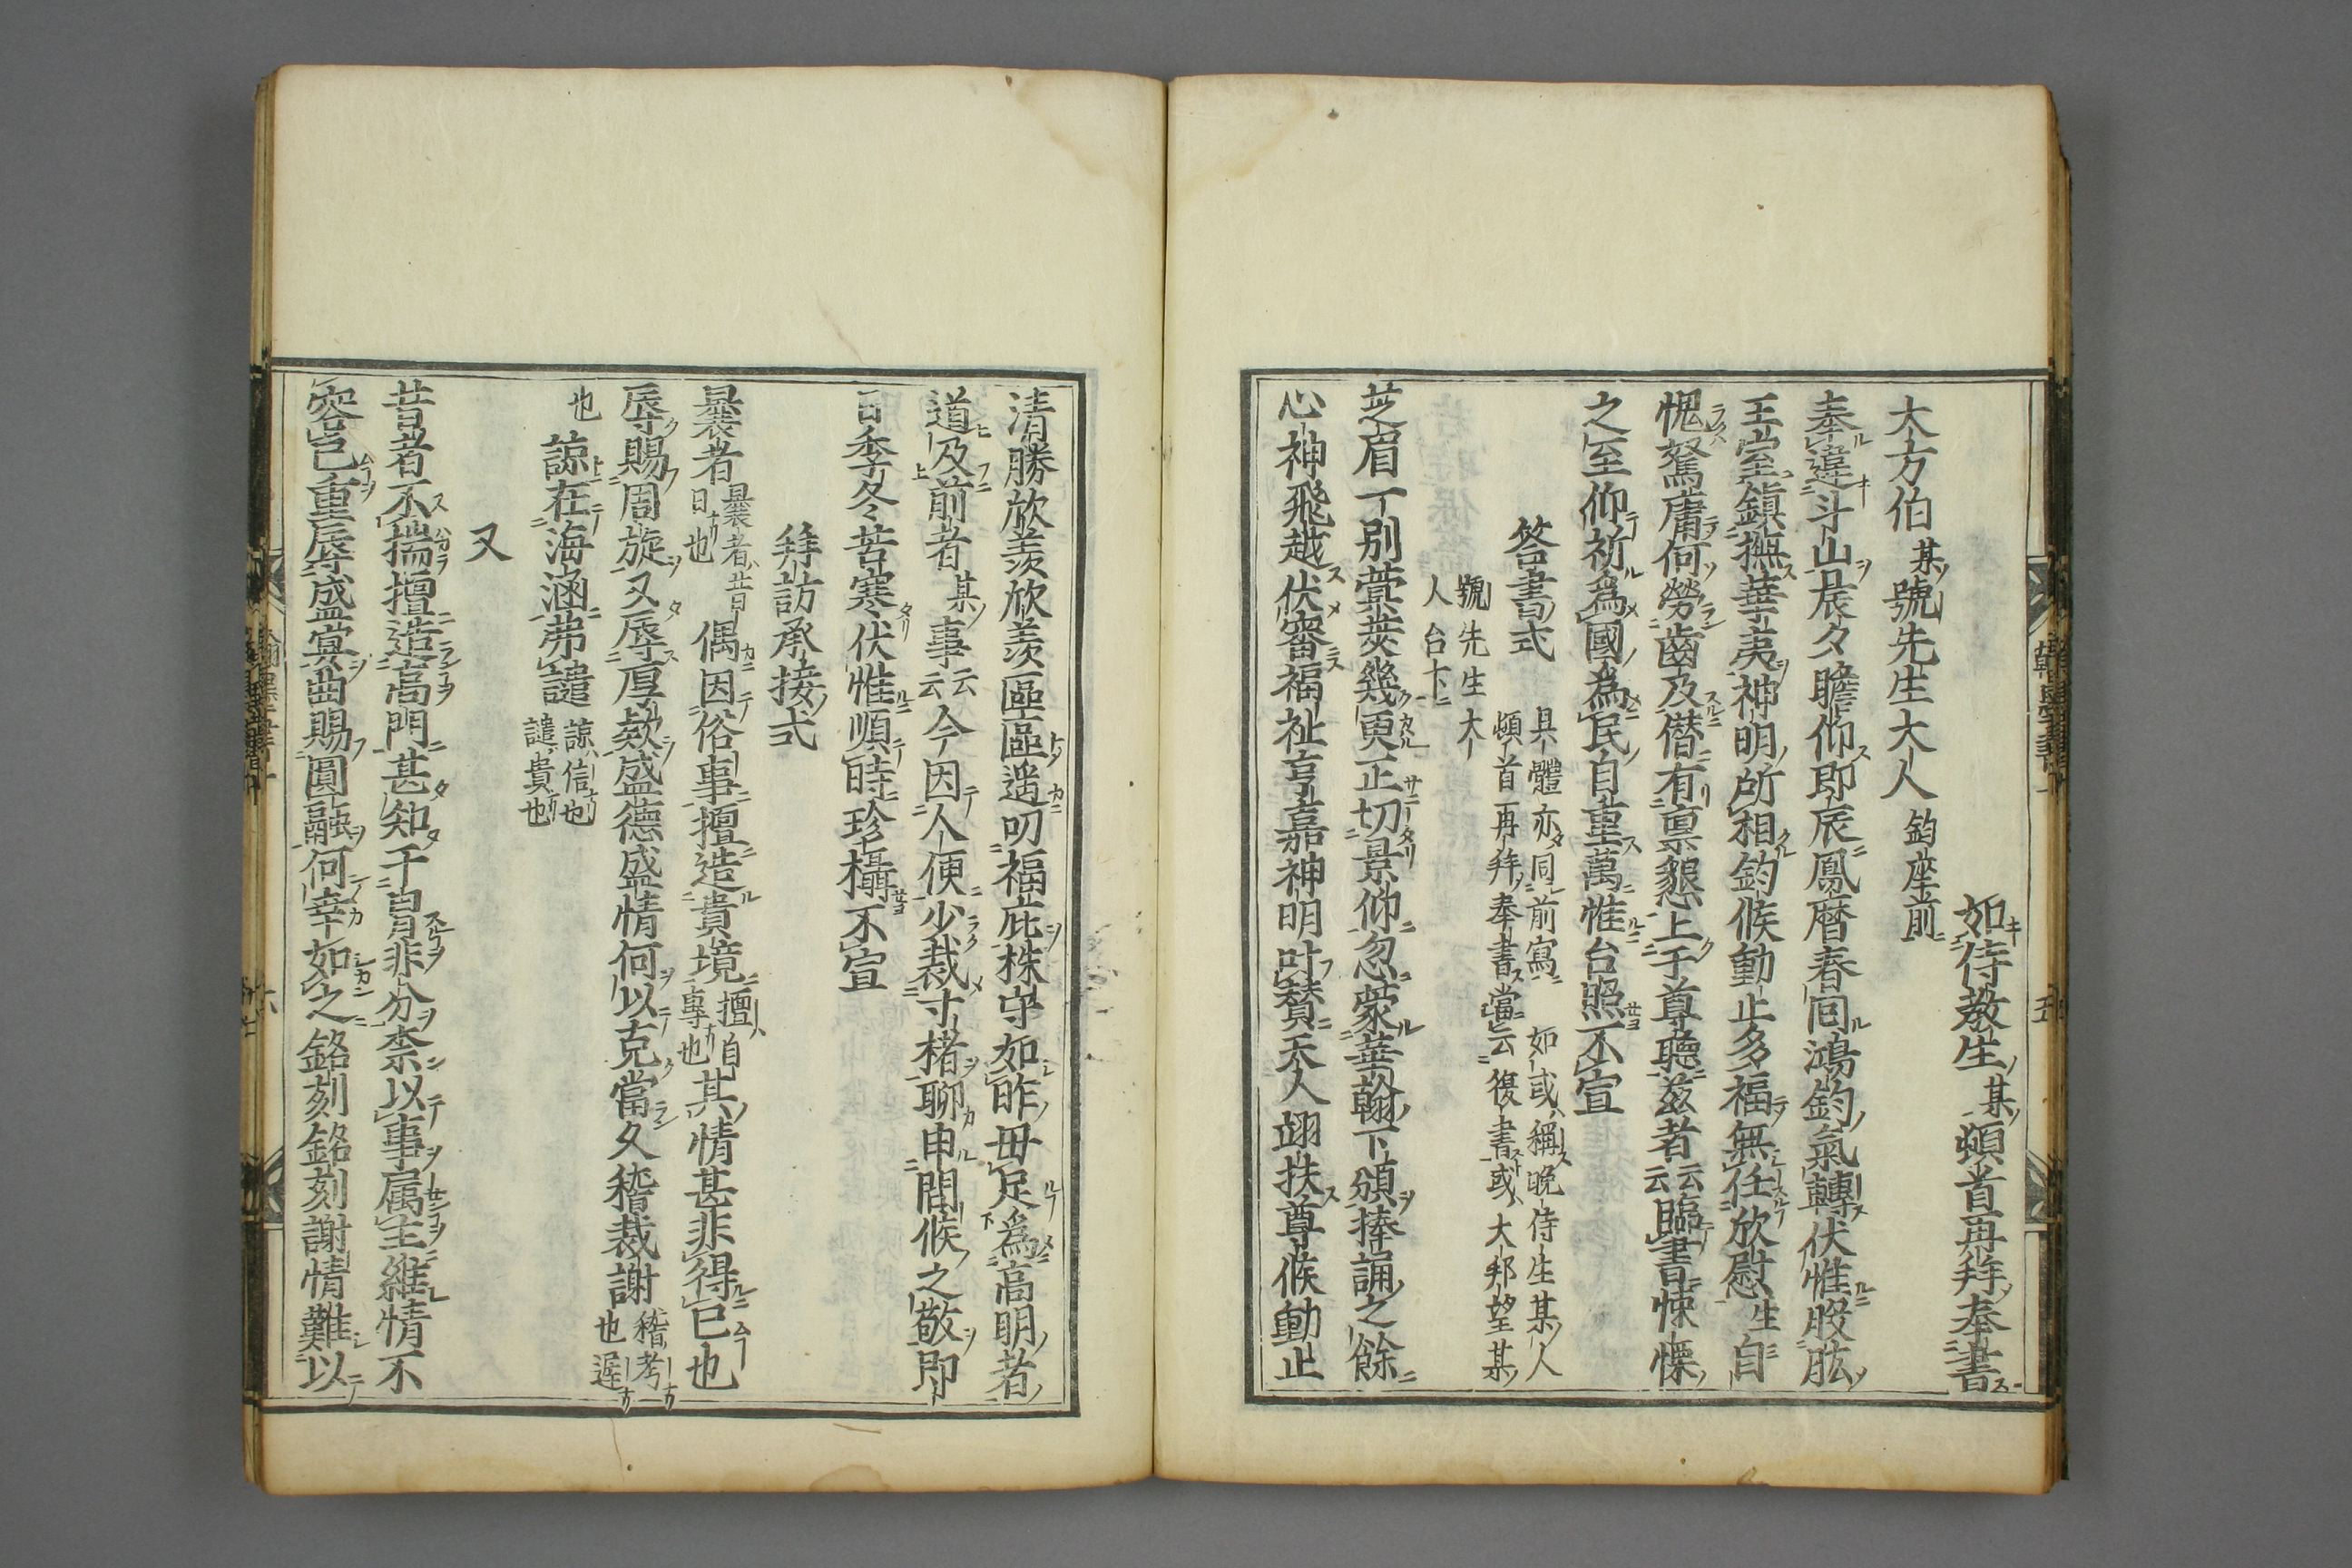 如侍教生某頓首再拜奉書
大方伯某號先生大人鈞座前
奉違斗山晨夕瞻仰即辰鳳曆春囘鴻鈞氣轉伏惟股肱
王室鎮撫華夷神明所相鈞候動止多福無任欣慰生自
愧駑庸何勞齒及僭有稟懇上于尊聽茲者云云臨書悚慄
之至仰祈爲國爲民自重萬惟台照不宣
答書式
具體亦同前寫如或稱晚侍生某人
頓首再拜奉書當云復書或大邦望某
號先生大
人台下
芝眉一別蓂莢幾更正切景仰忽蒙華翰下頒捧誦之餘
心神飛越伏審福祉亨嘉神明叶贊天人翊扶尊候動止
清勝欣羨欣羨區區遥叨福庇株守如昨毋足爲高明者
道及前者某事云云今因人便少裁寸楮聊申問候之敬即
日季冬苦寒伏惟順時珍攝不宣
拜訪承接式
曩者
曩者昔
日也
偶因俗事擅造貴境
擅自
專也
其情甚非得已也
辱賜周旋又辱厚欵盛德盛情何以克當久稽裁謝
稽考
也遲
也
諒在海涵弗譴
諒信也
譴責也
又
昔者不揣擅造高門甚知干冐非分柰以事属主維情不
容已重辱盛宴曲賜圓融何幸如之銘刻銘刻謝情難以